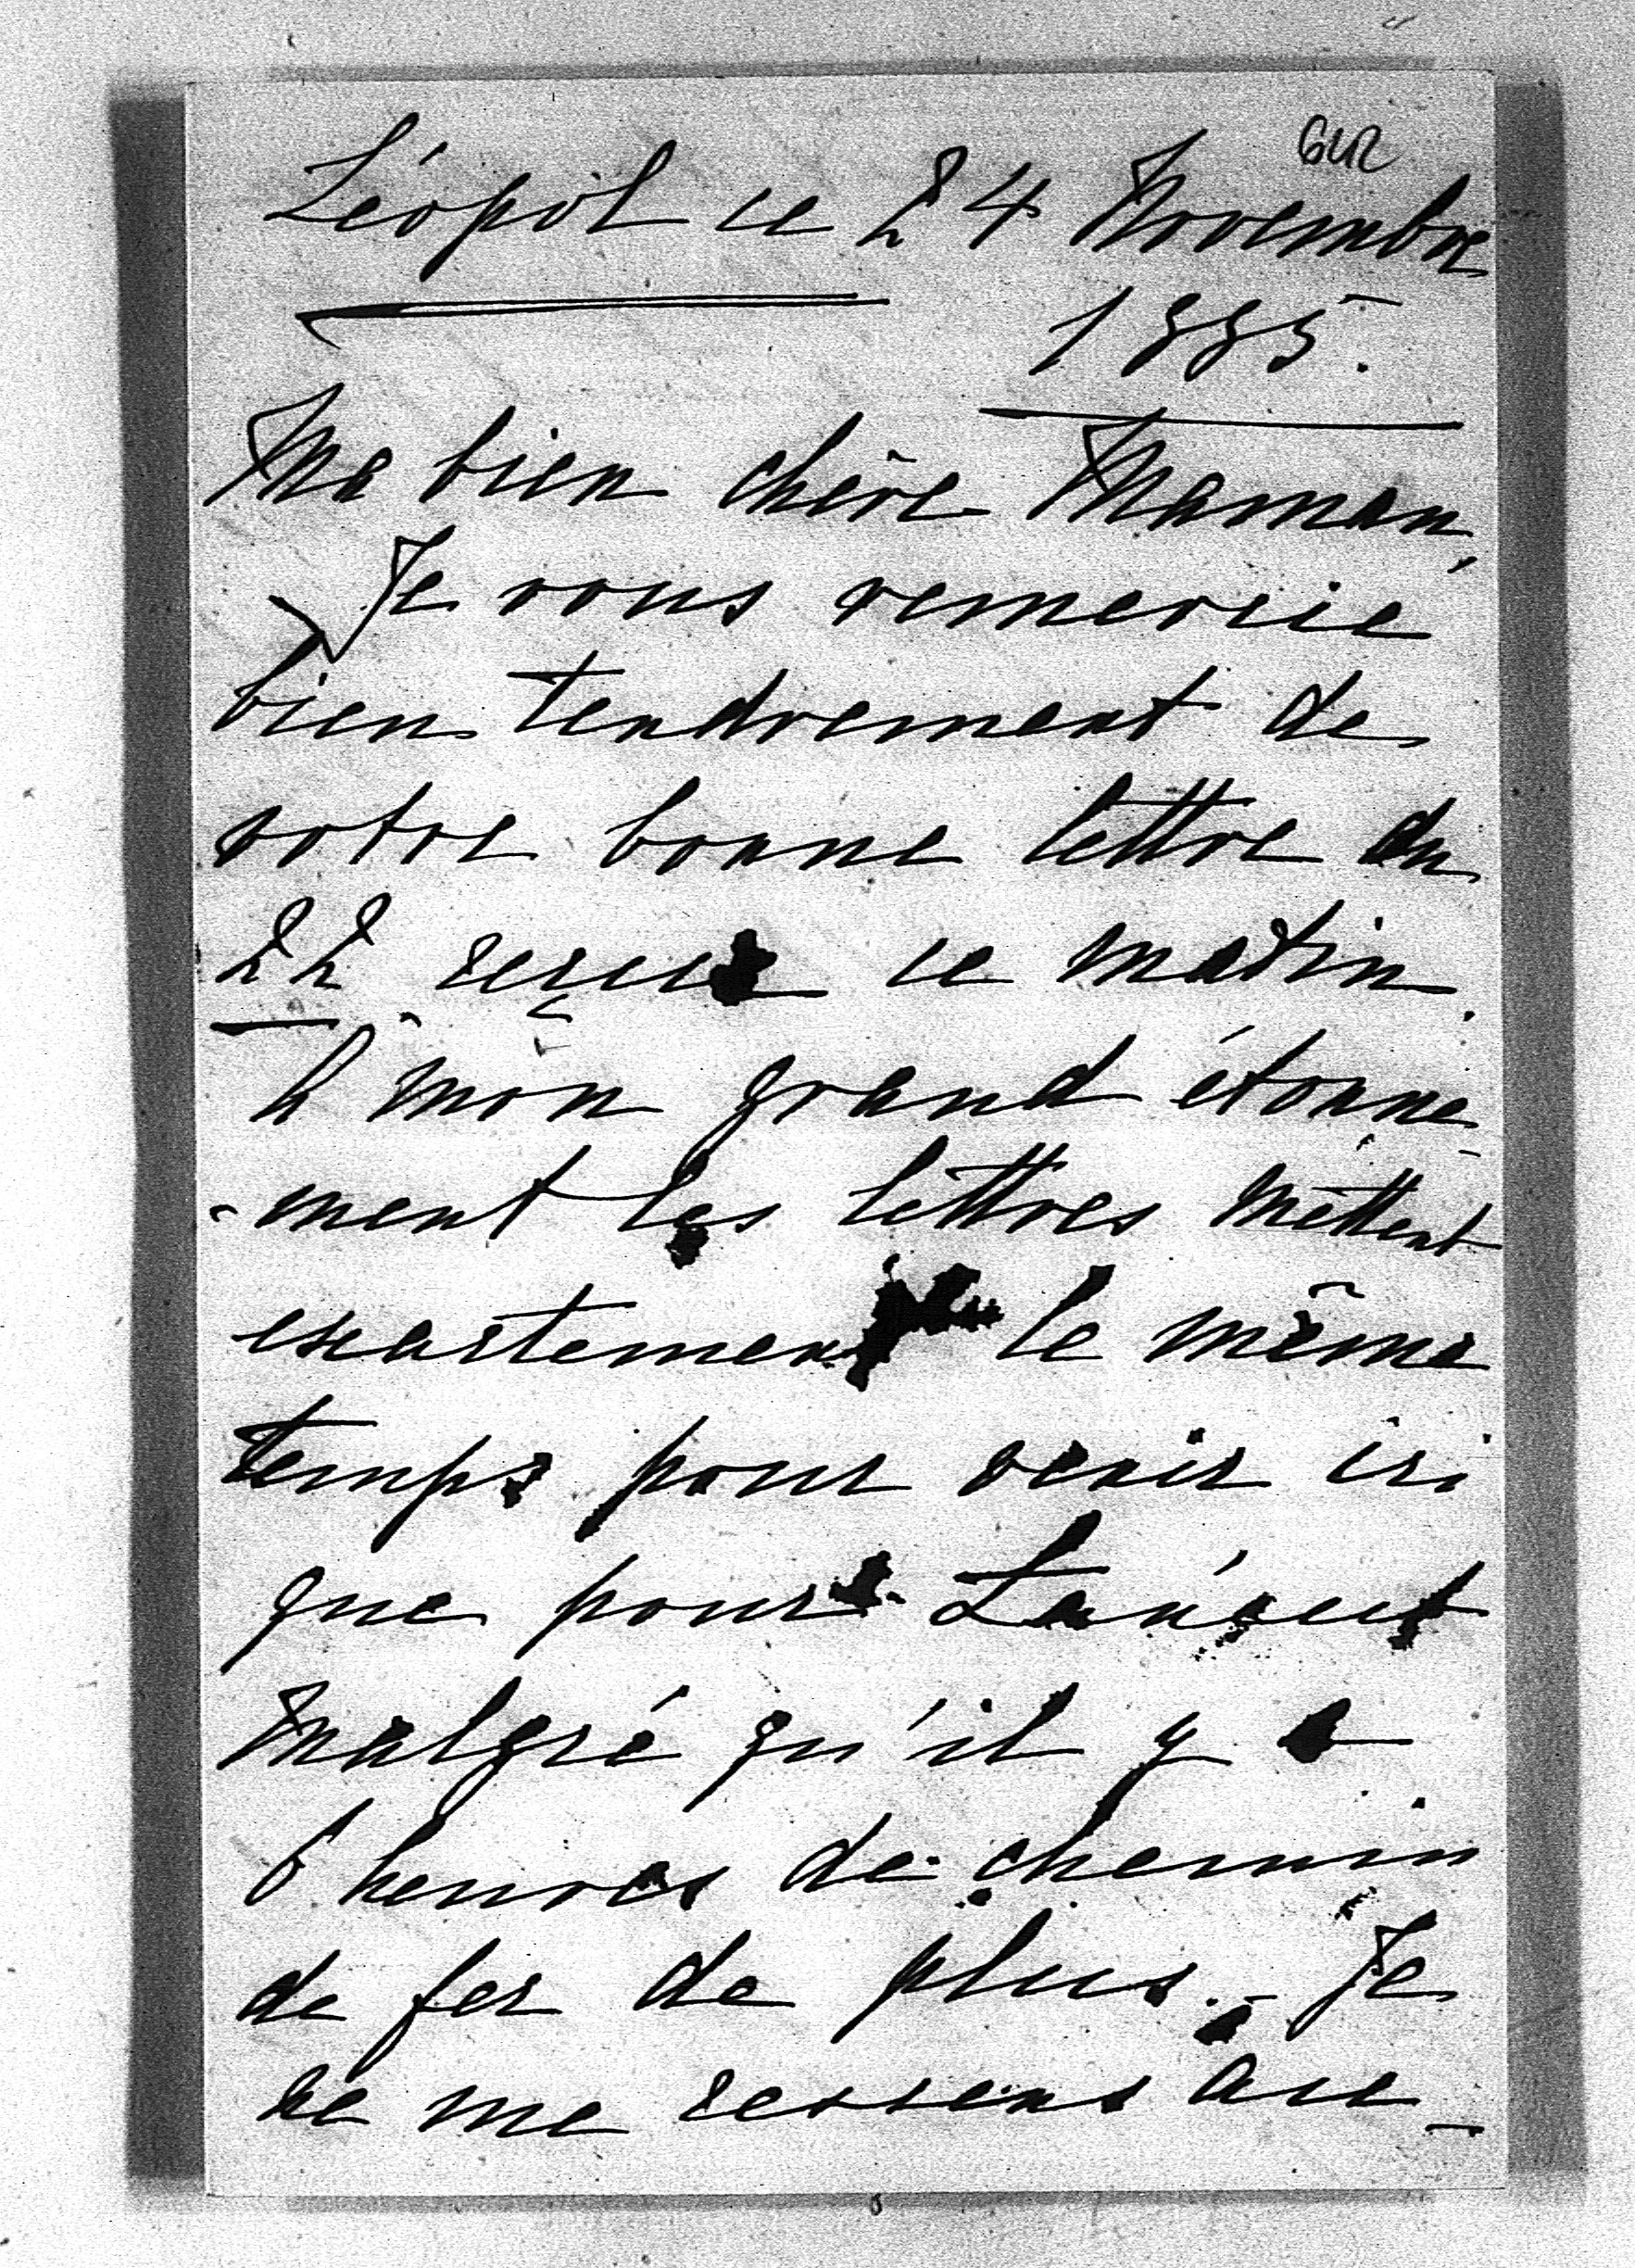 642
Léopol ce 24 Novembre
1885.
Ma bien chère Maman,
Je vous remercie
bien tendrement de
votre bonne lettre du
22 reçue ce matin.
A mon grand étonne-
-ment les lettres mettent
exactement le même
temps pour venir ici
que pour Lançut
malgré qu'il y a
6 heures de chemin
de fer de plus. - Je
ne me ressens auc-